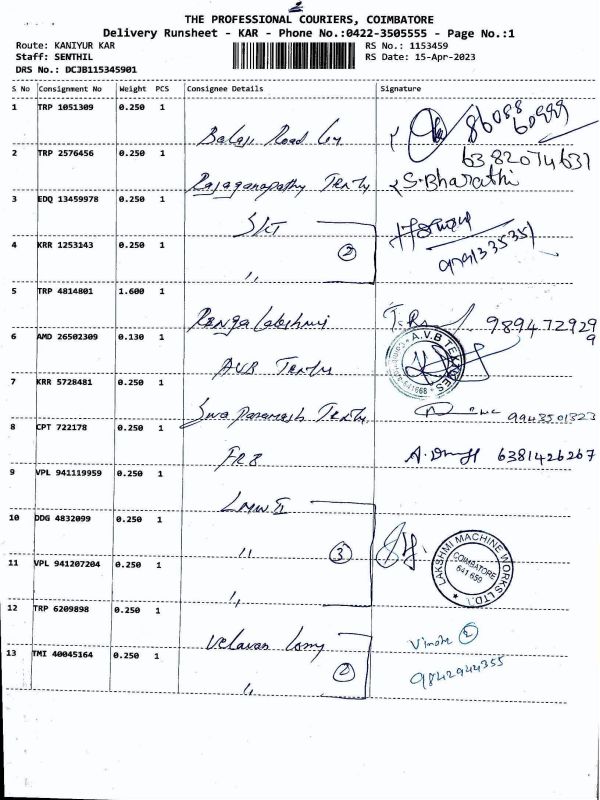 2
THE PROFESSIONAL COURIERS, COIMBATORE
Delivery Runsheet - KAR - Phone No.:0422-3505555 - Page No.:1
Route: KANIYUR KAR RS No.: 1153459
Staff: SENTHIL RS Date: 15-Apr-2023
DRS No.: DCJB115345901
S No Consignment No Weight PCS Consignee Details Signature
1 TRP 1051309 0.250 1
Balaji Road 86088 60999
2 TRP 2576456 0.250 1 6382074637
Rajaganapathy S.Bharathi
3 EDQ 13459978 0.250 1
SKT
4 KRR 1253143 0.250 1 2
"
5 TRP 4814801 1.600 1
Renga Lakshmi 9894729299
6 AMD 26502309 0.130 1 A.V.B TEXTILES
AVB
7 KRR 5728481 0.250 1
Siva 9943501323
8 CPT 722178 0.250 1
FR8 6381426267
9 VPL 941119959 0.250 1
LMW II
10 DDG 4832099 0.250 1
" 3 LAKSHMI MACHINE WORKS LTD. COIMBATORE 641 659
11 VPL 941207204 0.250 1
"
12 TRP 6209898 0.250 1
Velavan 2
13 TMI 40045164 0.250 1 2 9842944355
"